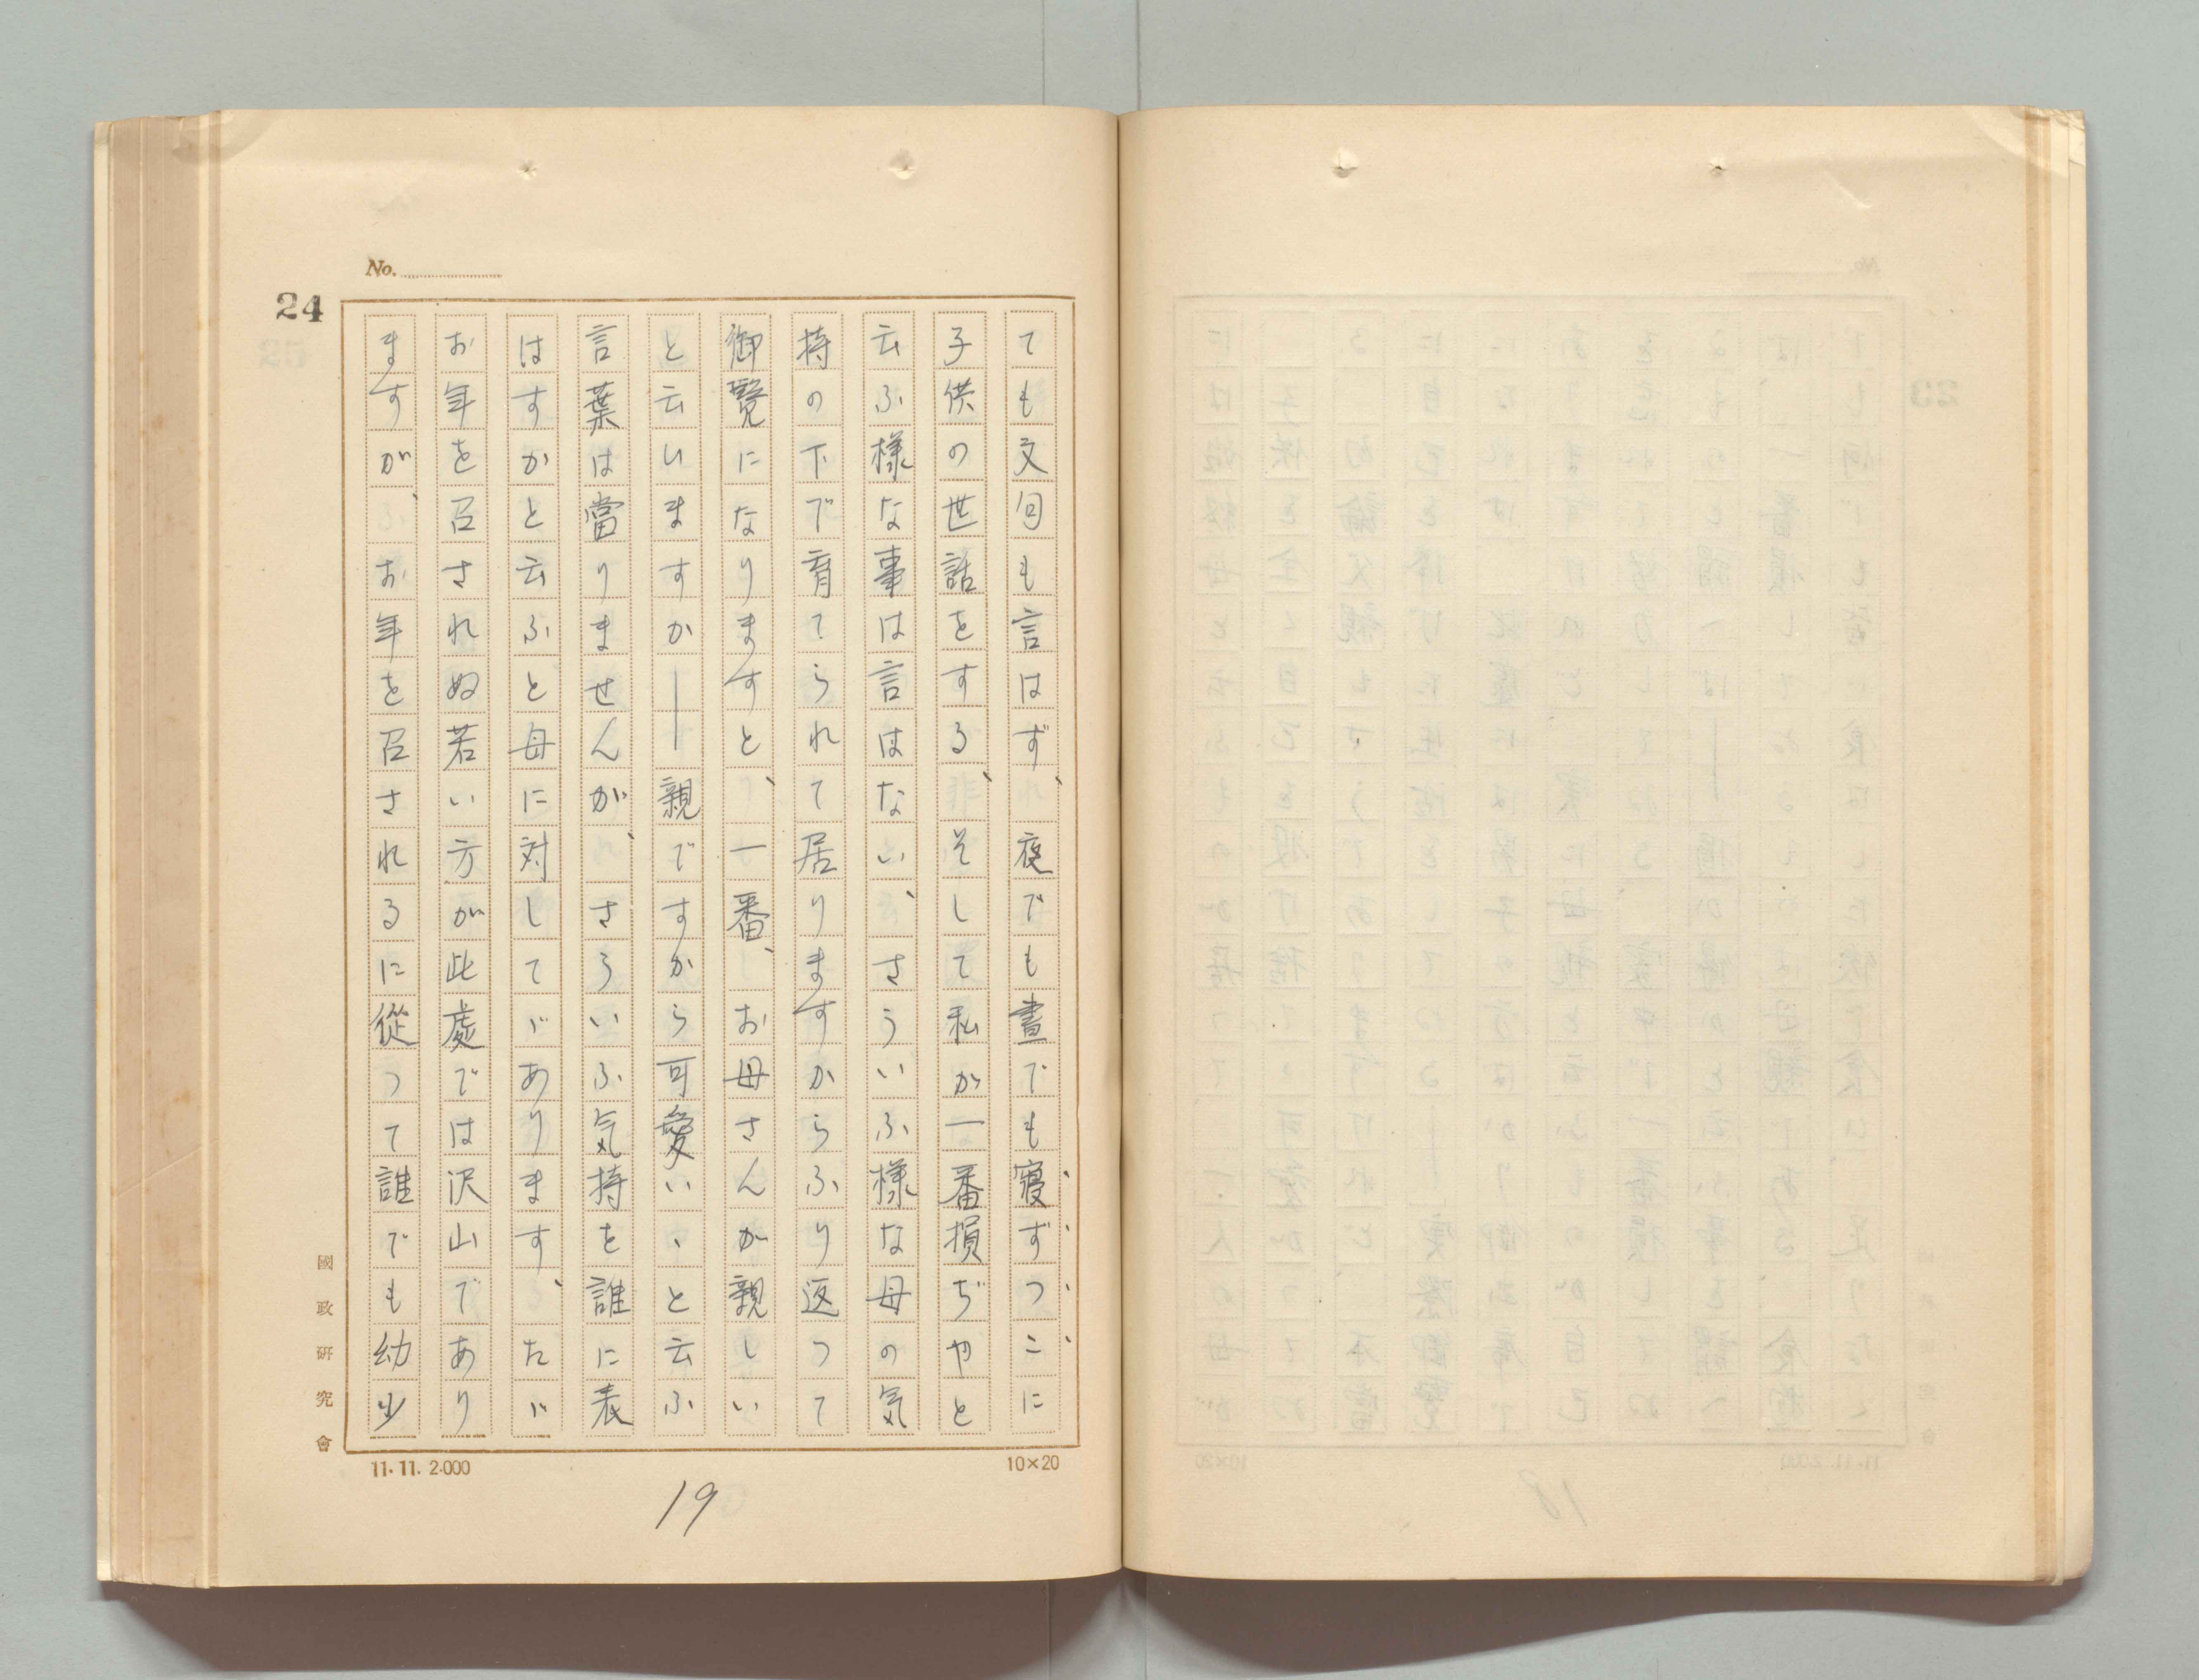 No.
24
ても文句も言はず、夜でも晝でも寝ずつこに
子供の世話をする、そして私が一番損ぢやと
云ふ様な事は言はない、さういふ様な母の気
持の下で育てられて居りますからふり返つて
御覧になりますと、一番、お母さんが親しい
と云いますか――親ですから可愛いゝと云ふ
言葉は當りませんが、さういふ気持を誰に表
はすかと云ふと母に対してゞあります、たゞ
お年を召されぬ若い方が此處では沢山であり
ますが、お年を召されるに從つて誰でも幼少
國政研究會
11.11.2.000
10×20
19